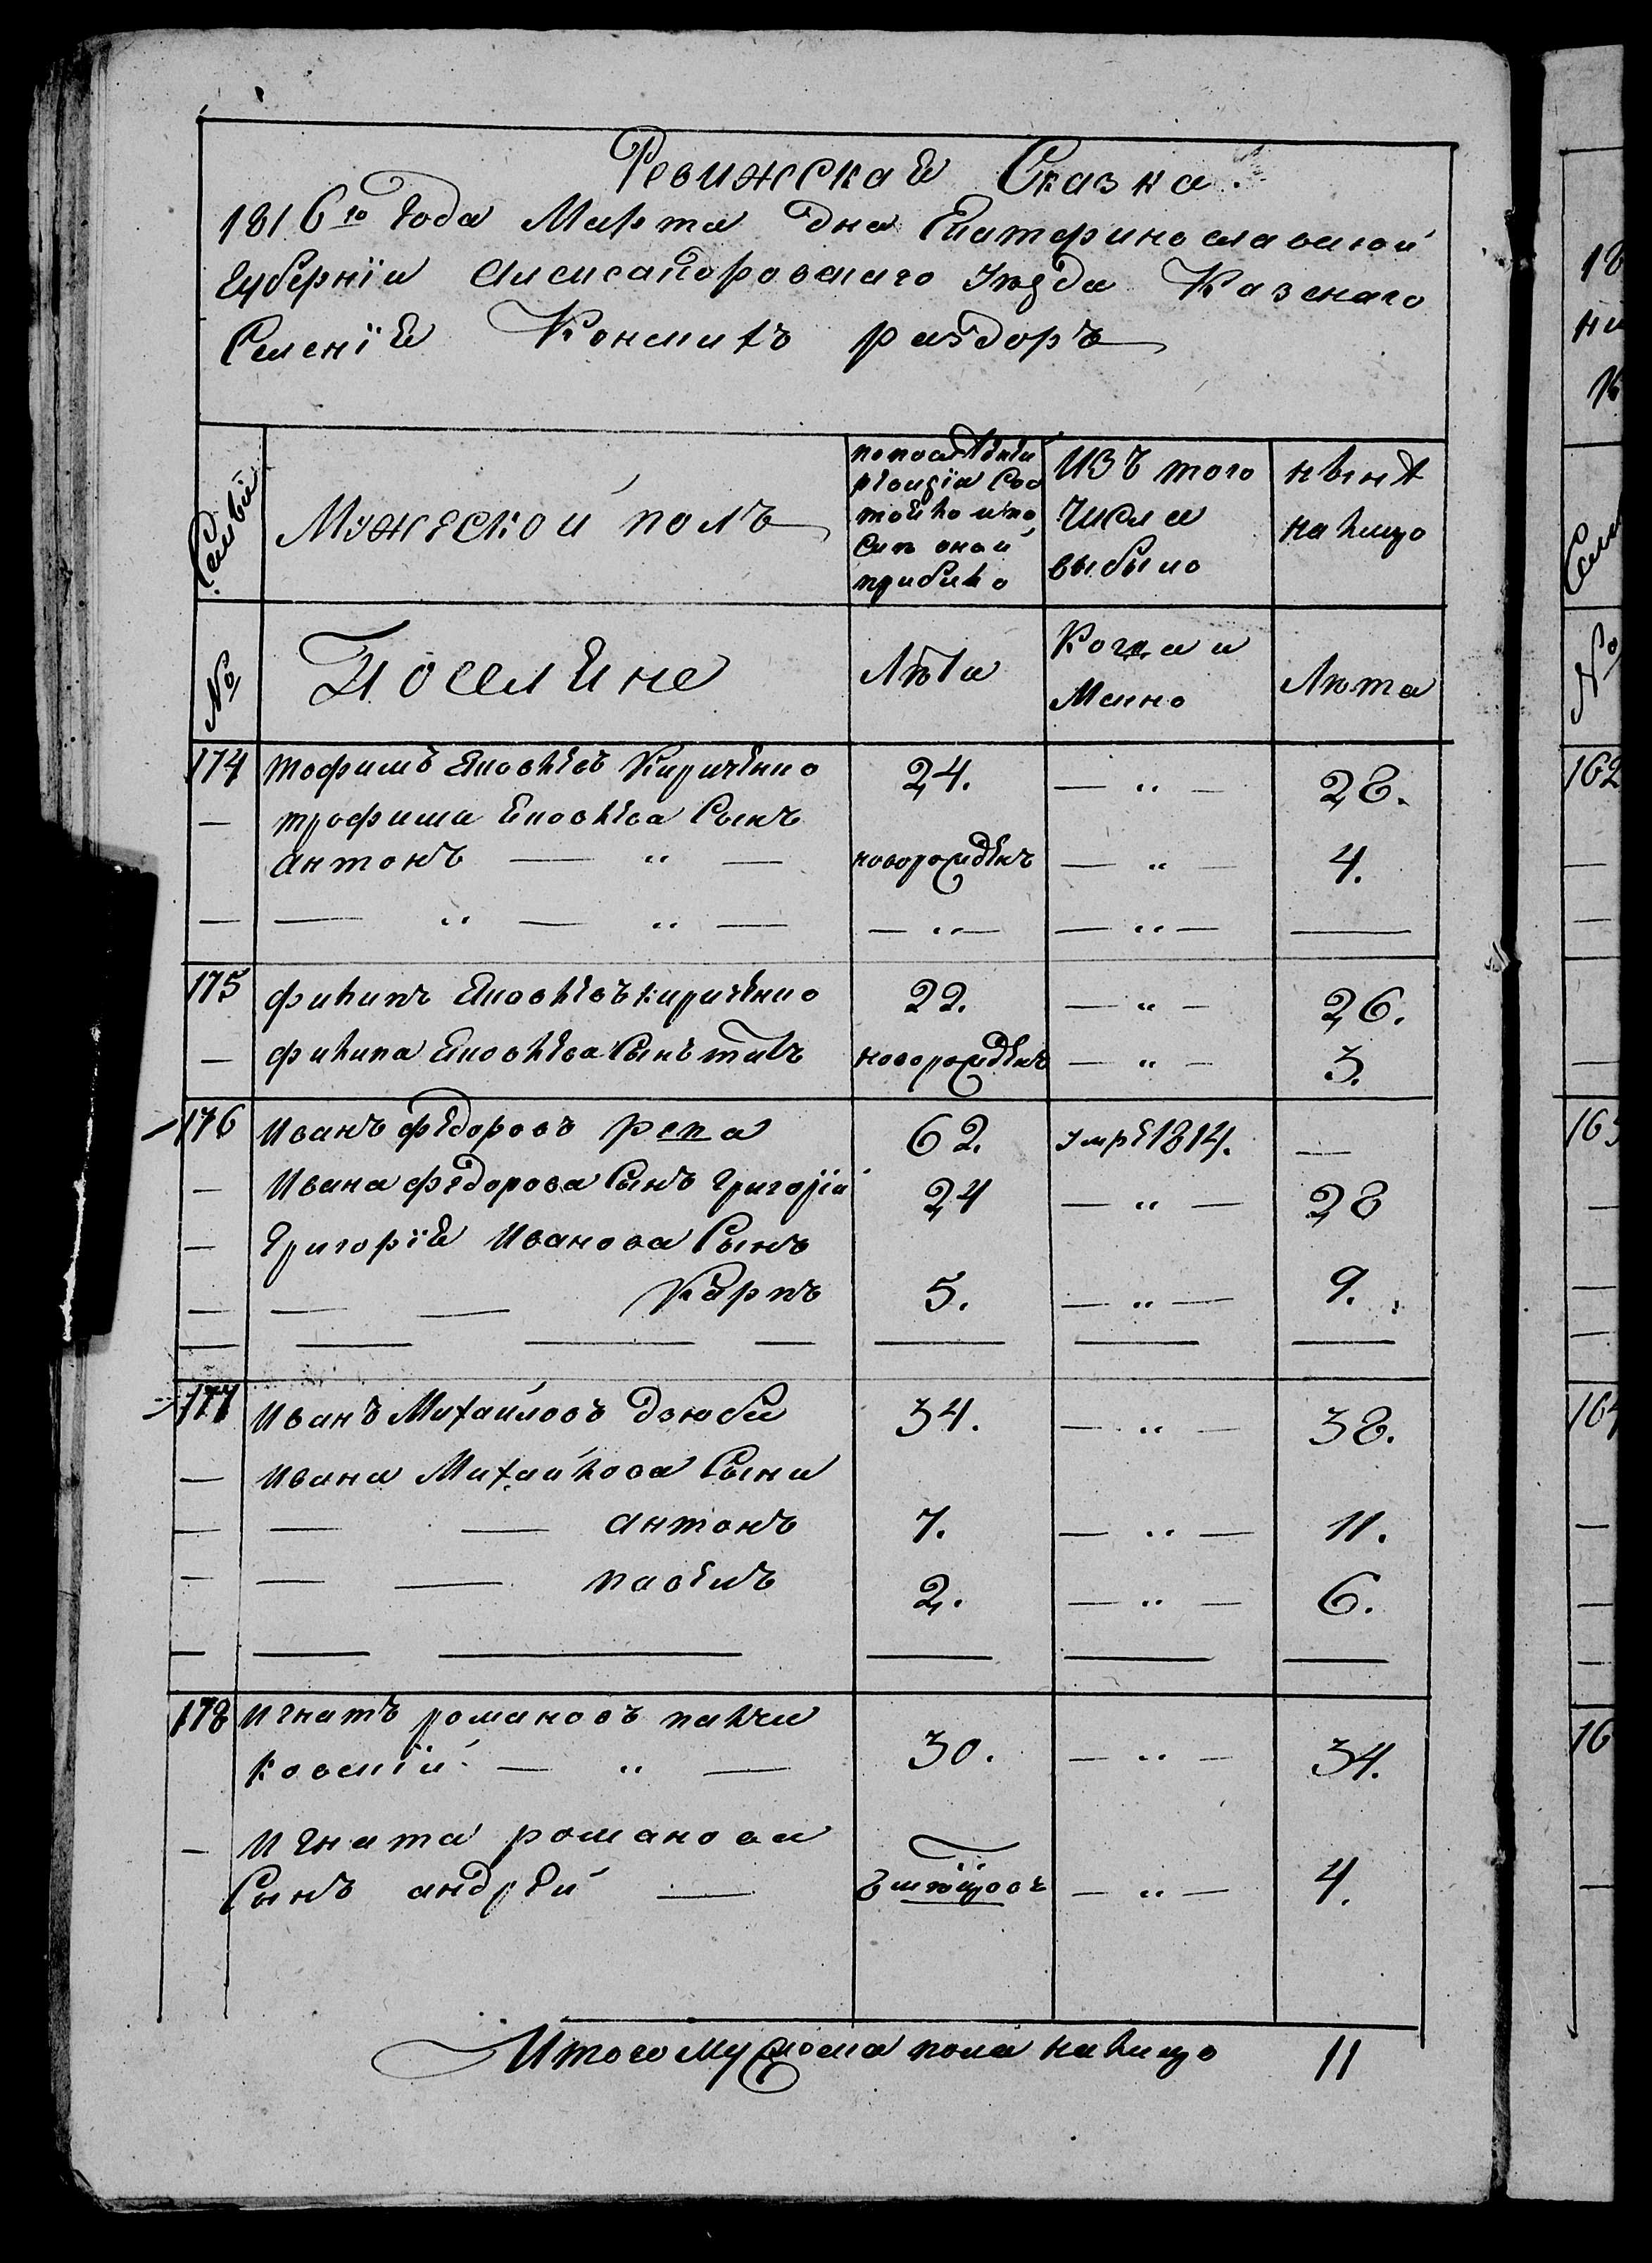 Ревижская Сказка.
1816го Года Марта дня Екатеринославской
Губерніи Александровскаго Уезда Казенаго
Селенія Конскихъ раздоръ
Семьи
Мужеской полъ
по последней
ревизіи Сос
тояло и по
сле оной
прибыло
изъ того
числа
выбыло
ныне
налицо
№
Поселяне
Лета
Когда и
Менно
Лета
174 тофимъ Яковлевъ Кириченко 24. — „ — 28.
— трофима Яковлева Сынъ
антонъ — „ — новорожденъ — „ — 4.
— — „ — „ — — „ — — „ — —
175 филипъ Яковлевъ кириченко 22. — „ — 26.
— филипа Яковлева Сынъ титъ новорожденъ — „ — 3.
176 Иванъ федоровъ репа 62. умре 1814. —
— Ивана федорова Сынъ Григорій 24 — „ — 28
— Григорія Иванова Сынъ
— — — Карпъ 5. — „ — 9.
— — — — — — —
177 Иванъ Михайловъ дзюба 34. — „ — 38.
— Ивана Михайлова Сыни
— — — антонъ 7. — „ — 11.
— — — павелъ 2. — „ — 6.
— — — — — —
178 Игнатъ романовъ палчи
ковскій — „ — 30. — „ — 34.
— Игната романова
Сынъ андрей — — „ — 4.
Итого мужеска пола налицо 11
18
ни
К
Семьи
№
162
163
164
16